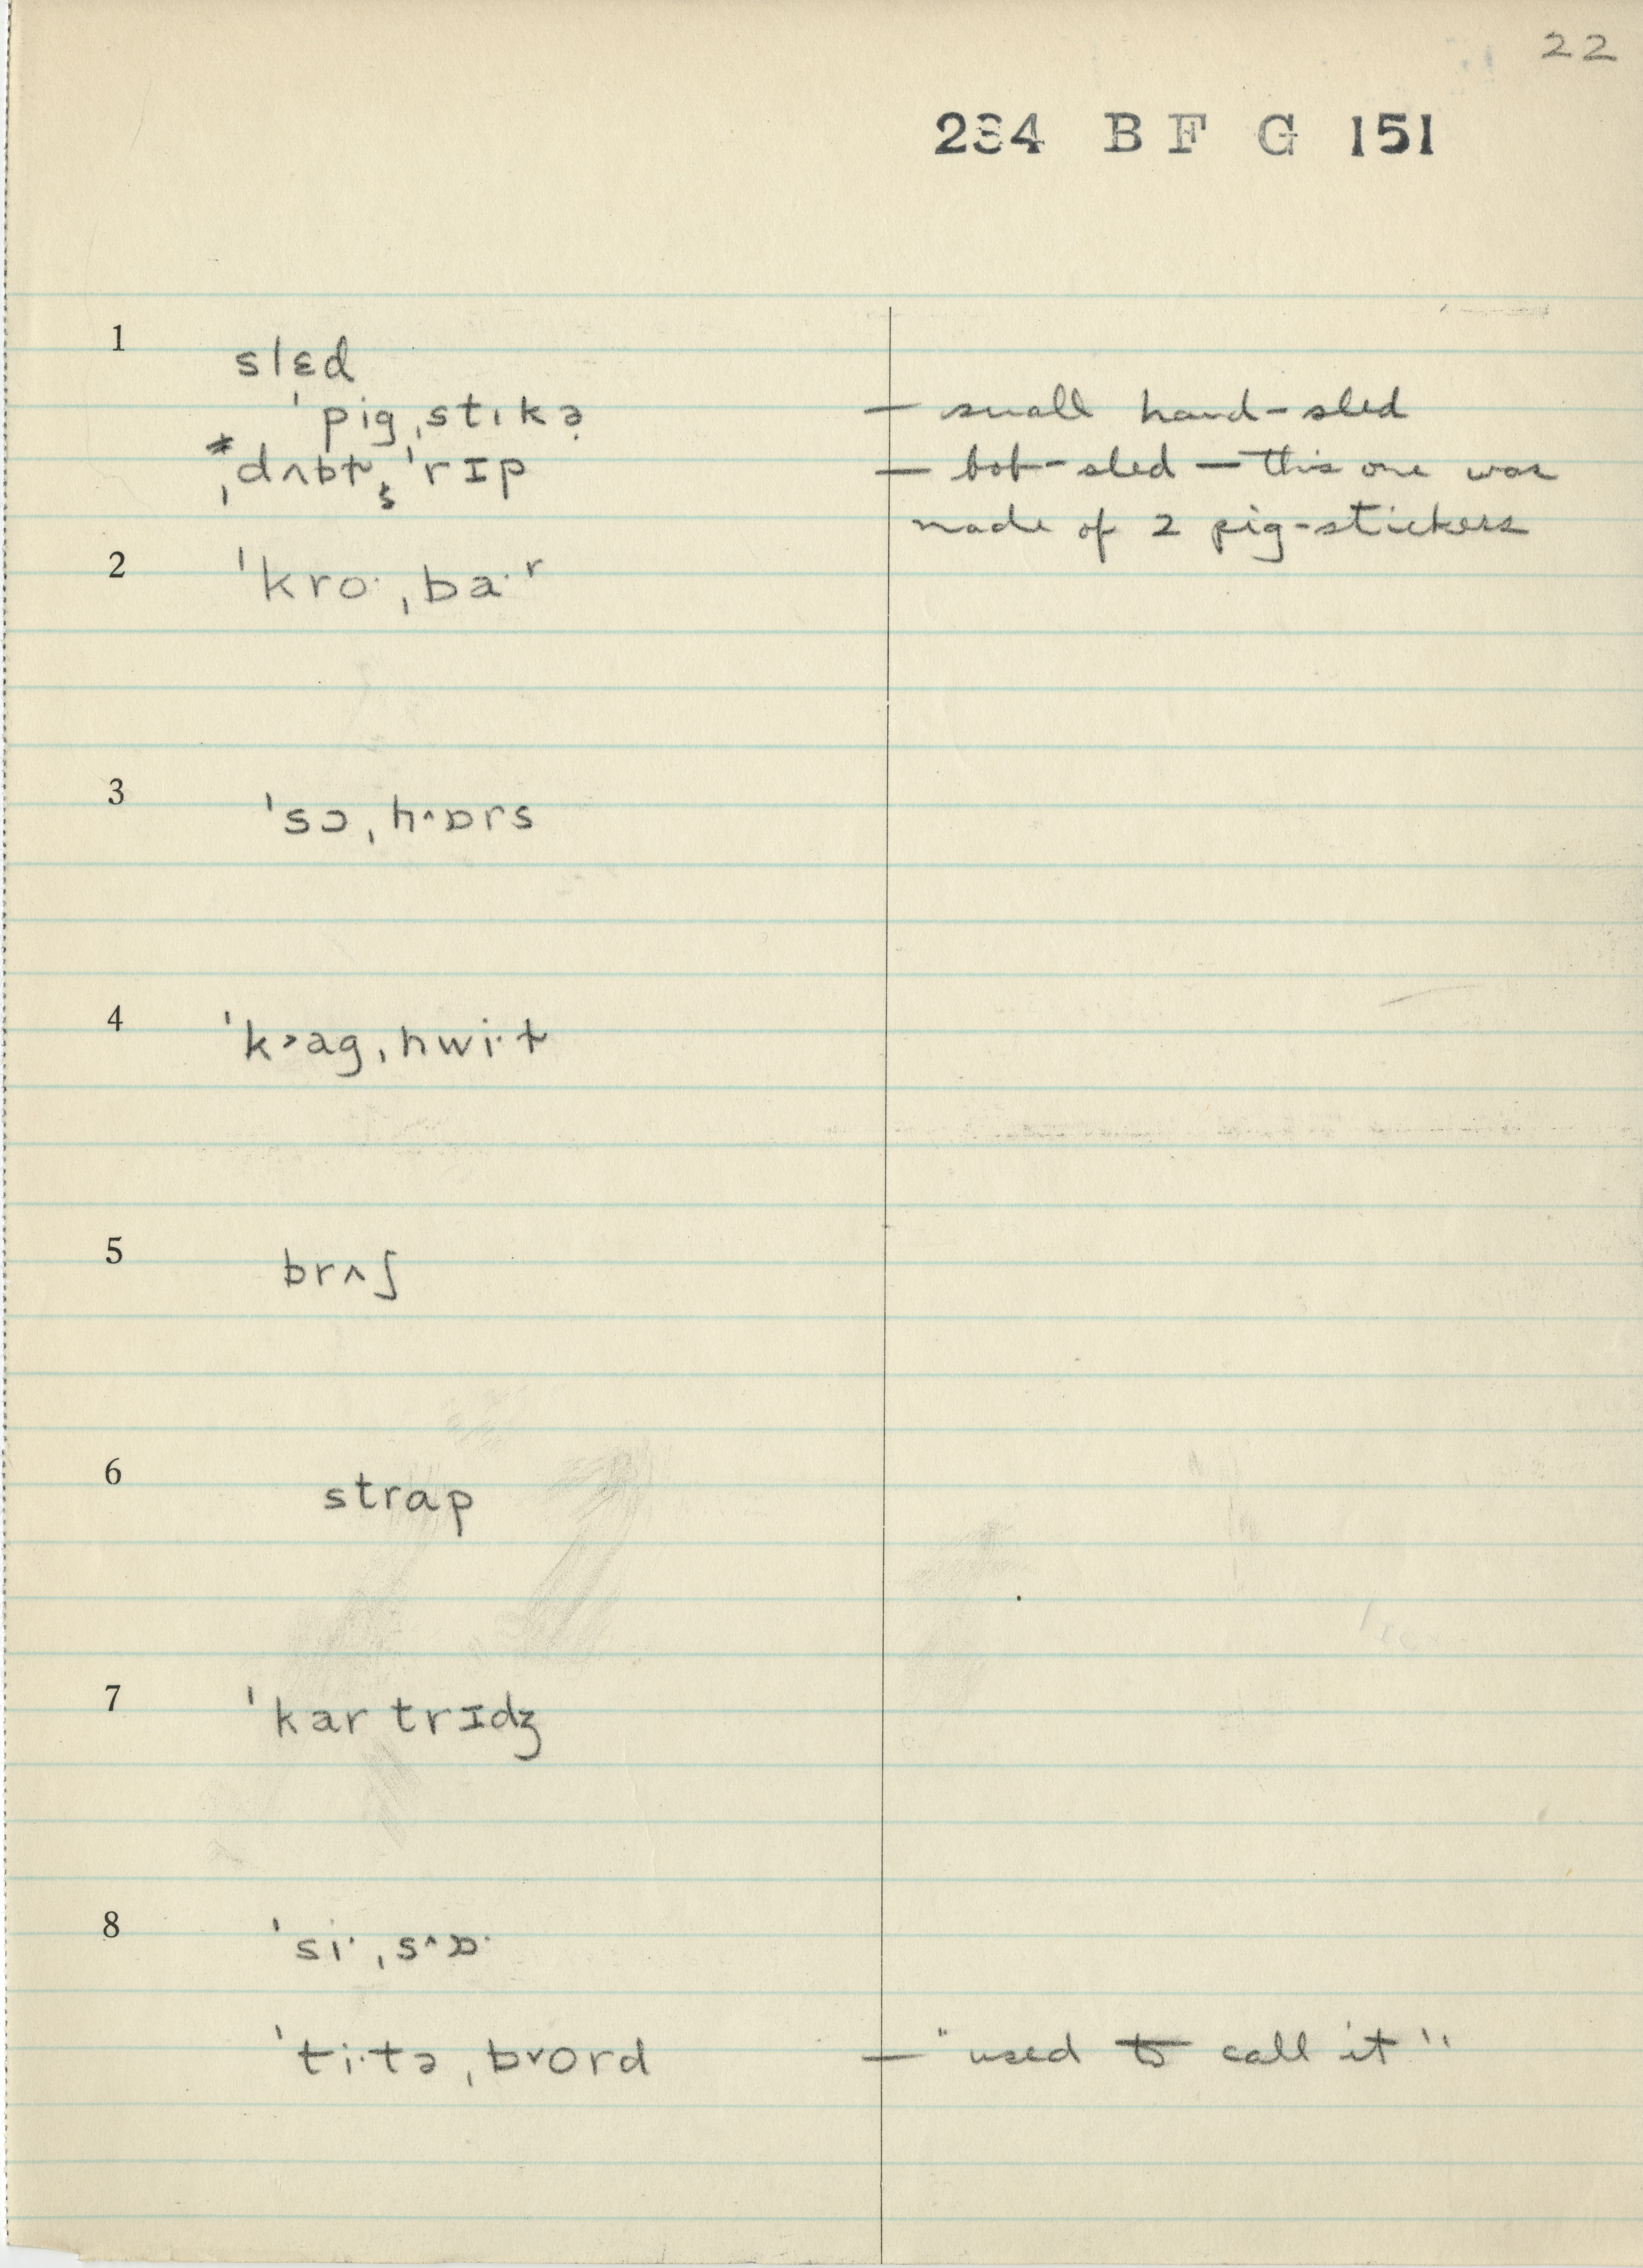 22
234 B F G 151
1
slɛd
ˈpigˌstɪkə̣ — small hand-sled
*ˌdʌbɫ̩ ˈrɪp — bob-sled — this one was
made of 2 pig-stickers
2 ˈkro·ˌba·ʳ
3 ˈsɔˌh^ɒrs
4 ˈk˃agˌhwi·ɫ
5 brʌʃ
6 strap
7 ˈkartrɪdʒ
8 ˈsi·ˌs^ɒ·
ˈti·təˌb˅ord — "used to call it"